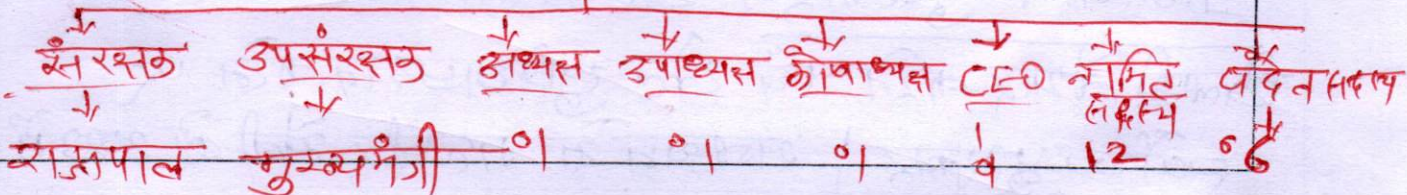 संरक्षक उपसंरक्षक अध्यक्ष उपाध्यक्ष कोषाध्यक्ष CEO नामित सदस्य पदेन सदस्य
राज्यपाल मुख्यमंत्री 01 01 01 12